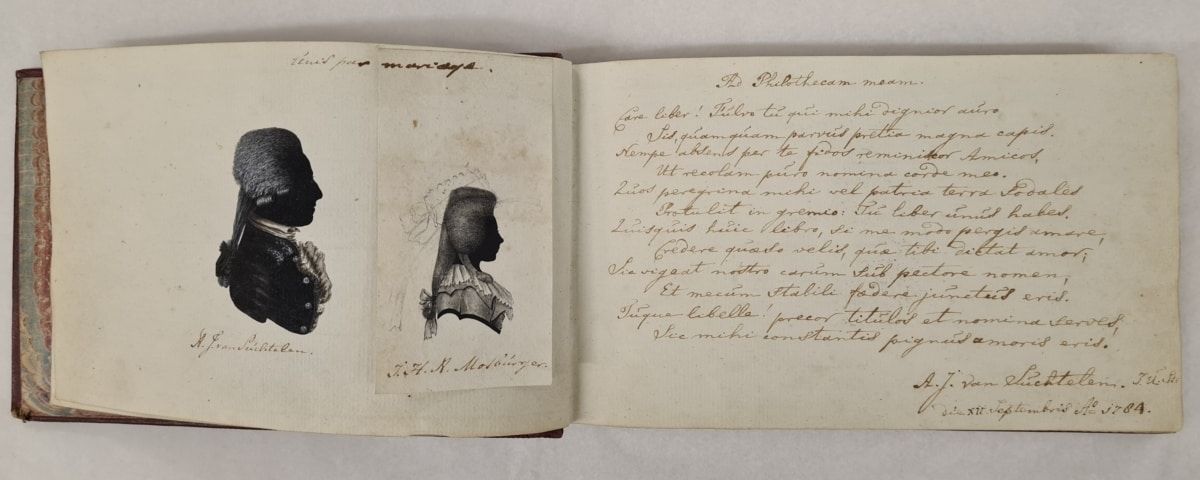 Unis par mariage.
A. J. van Suchtelen.
J. H. R. Mosburger.
Ad Philothecam meam.
Care liber! Fulvo tu qui mihi dignior auro
Sis, quamquam parvus pretia magna capis.
Nempe absens per te fidos reminiscor Amicos,
Ut recolam puro nomina corde meo.
Quos peregrina mihi vel patria terra Sodales
Protulit in gremio: Tu liber unus habes.
Quisquis huic libro, si me modo pergis amare,
Credere quæso velis, quæ tibi dictat amor;
Sic vigeat nostro carum sub pectore nomen,
Et mecum stabili fœdere junctus eris.
Tuque libelle! precor titulos et nomina serves,
Sic mihi constantis pignus amoris eris.
A. J. van Suchtelen.
die XII Septembris Ao 1784.